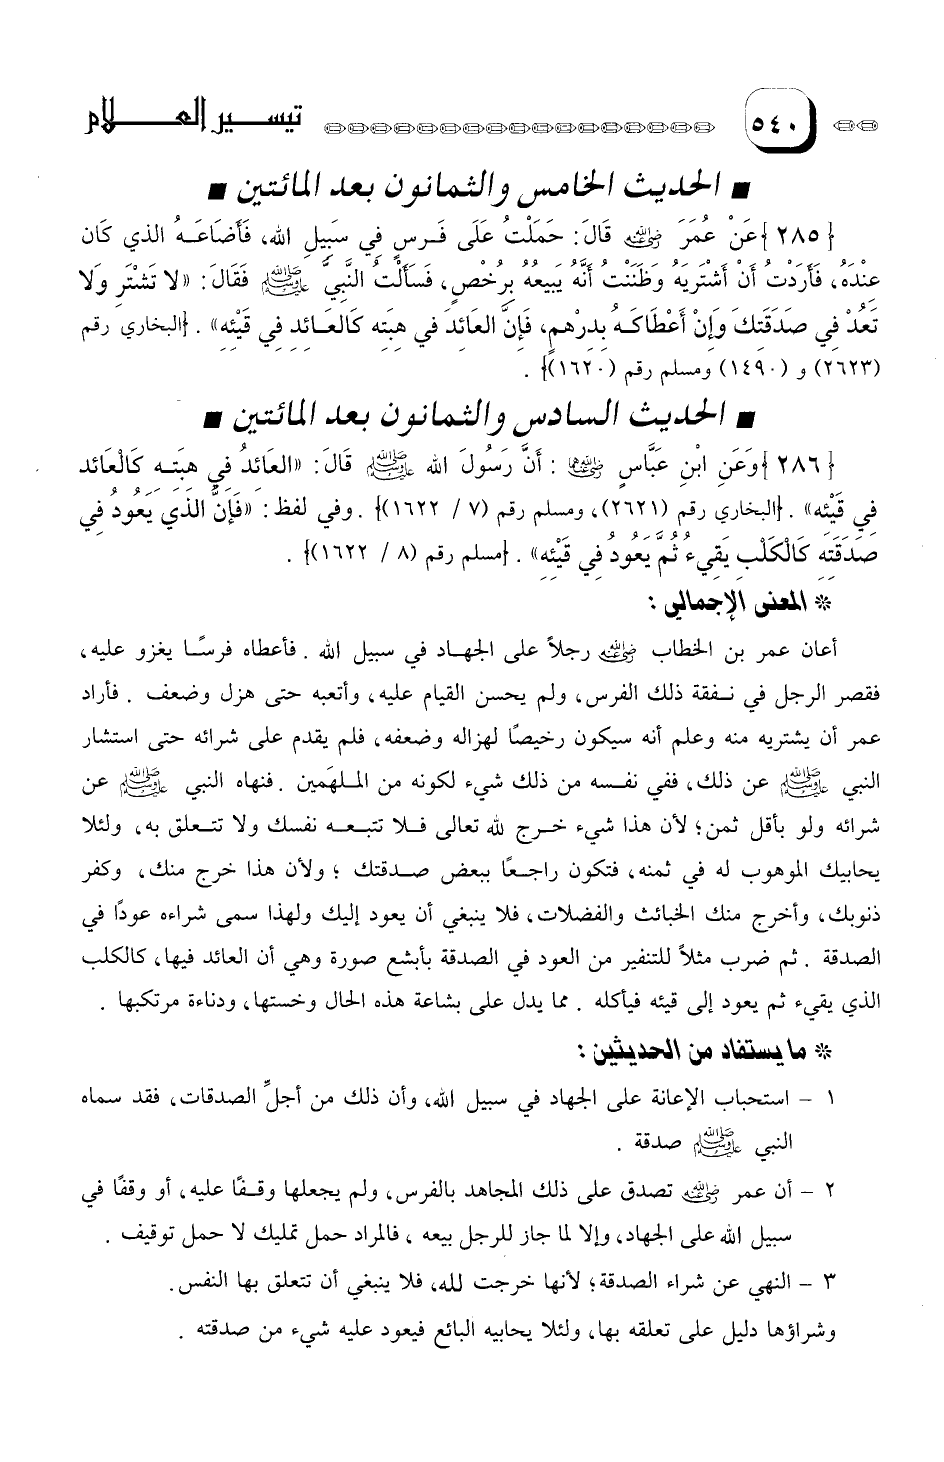 ٥٤٠ تيسير العلام
■ الحديث الخامس والثمانون بعد المائتين ■
{٢٨٥} عَنْ عُمَرَ رضي الله عنه قَالَ: حَمَلْتُ عَلَى فَرسٍ فِي سَبِيلِ الله، فَأَضَاعَهُ الذي كَان
عِنْدَهُ، فَأَردْتُ أَنْ أَشْتَرِيَهُ وَظَنَنْتُ أَنَّهُ يَبِيعُهُ بِرُخْصٍ، فَسَأَلْتُ النَّبِيَّ ﷺ فَقَالَ: «لا تَشْتَرِ وَلا
تَعُدْ فِي صَدَقَتِكَ وَإِنْ أَعْطَاكَهُ بِدِرْهَمٍ، فَإِنَّ العَائِدَ فِي هِبَتِهِ كَالعَائِدِ فِي قَيْئِهِ» . {البخاري رقم
(٢٦٢٣) و (١٤٩٠) ومسلم رقم (١٦٢٠)} .
■ الحديث السادس والثمانون بعد المائتين ■
{٢٨٦} وَعَنِ ابْنِ عَبَّاسٍ رضي الله عنهما : أَنَّ رَسُولَ الله ﷺ قَالَ: «العَائِدُ فِي هِبَتِهِ كَالْعَائِدِ
فِي قَيْئِهِ» . {البخاري رقم (٢٦٢١)، ومسلم رقم (٧ / ١٦٢٢)} . وفي لفظ: «فَإِنَّ الَّذي يَعُودُ فِي
صَدَقَتِهِ كَالْكَلْبِ يَقِيءُ ثُمَّ يَعُودُ فِي قَيْئِهِ» . {مسلم رقم (٨ / ١٦٢٢)} .
* المعنى الإجمالي :
أعان عمر بن الخطاب رضي الله عنه رجلاً على الجهاد في سبيل الله . فأعطاه فرسًا يغزو عليه،
فقصر الرجل في نفقة ذلك الفرس، ولم يحسن القيام عليه، وأتعبه حتى هزل وضعف . فأراد
عمر أن يشتريه منه وعلم أنه سيكون رخيصًا لهزاله وضعفه، فلم يقدم على شرائه حتى استشار
النبي ﷺ عن ذلك، ففي نفسه من ذلك شيء لكونه من الملهَمين . فنهاه النبي ﷺ عن
شرائه ولو بأقل ثمن؛ لأن هذا شيء خرج لله تعالى فلا تتبعه نفسك ولا تتعلق به، ولئلا
يحابيك الموهوب له في ثمنه، فتكون راجعًا ببعض صدقتك ؛ ولأن هذا خرج منك، وكفر
ذنوبك، وأخرج منك الخبائث والفضلات، فلا ينبغي أن يعود إليك ولهذا سمى شراءه عودًا في
الصدقة . ثم ضرب مثلاً للتنفير من العود في الصدقة بأبشع صورة وهي أن العائد فيها، كالكلب
الذي يقيء ثم يعود إلى قيئه فيأكله . مما يدل على بشاعة هذه الحال وخستها، ودناءة مرتكبها .
* ما يستفاد من الحديثين :
١ - استحباب الإعانة على الجهاد في سبيل الله، وأن ذلك من أجلِّ الصدقات، فقد سماه
النبي ﷺ صدقة .
٢ - أن عمر رضي الله عنه تصدق على ذلك المجاهد بالفرس، ولم يجعلها وقفًا عليه، أو وقفًا في
سبيل الله على الجهاد، وإلا لما جاز للرجل بيعه ، فالمراد حمل تمليك لا حمل توقيف .
٣ - النهي عن شراء الصدقة؛ لأنها خرجت لله، فلا ينبغي أن تتعلق بها النفس.
وشراؤها دليل على تعلقه بها، ولئلا يحابيه البائع فيعود عليه شيء من صدقته .